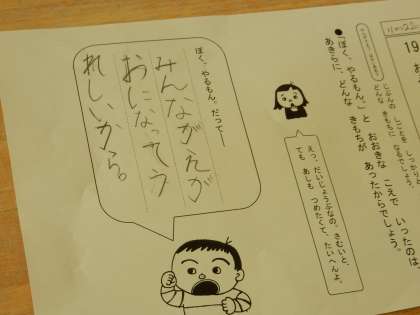 19
●「ぼく、やるもん。」と おおきな こえで いったのは、
あきらに、どんな きもちが あったからでしょう。
えっ、だいじょうぶなの。さむいと、
ても あしも つめたくて、たいへんよ。
ぼく、やるもん。だって――
みんながえが
おになってう
れしいから。